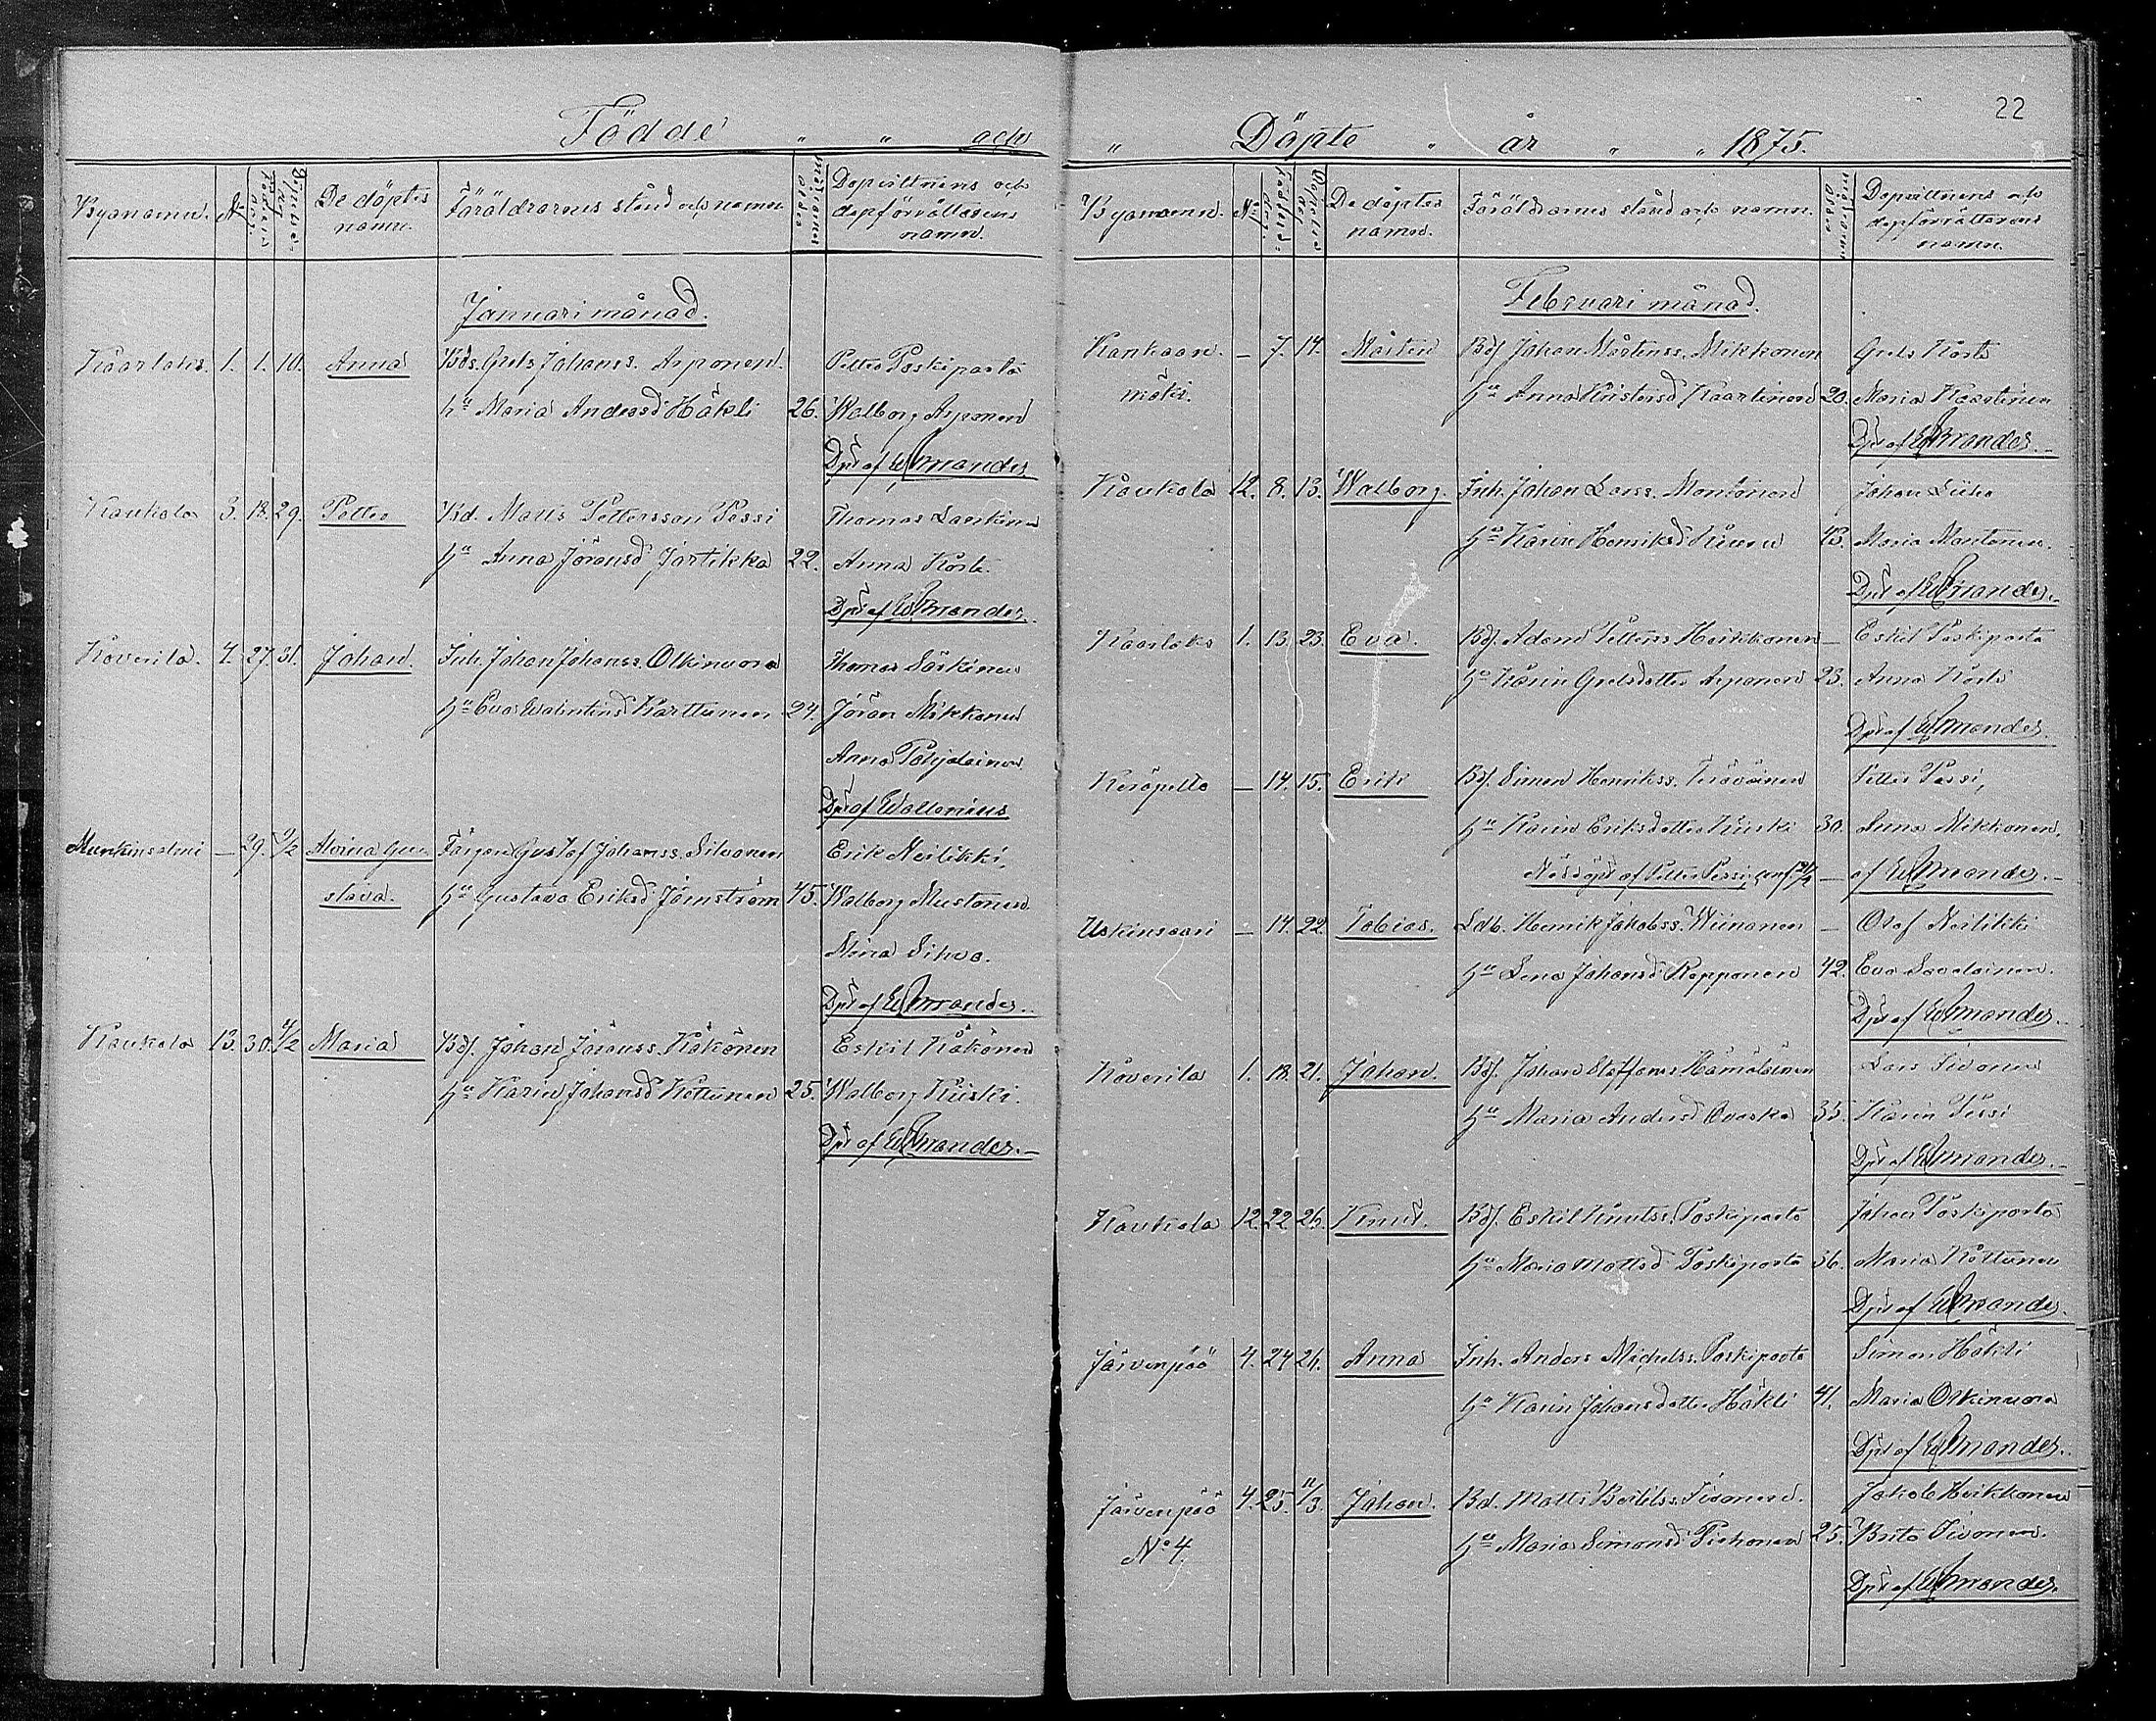 22
Födde " " och " Döpte " år " " 1875.
Byanamn. № Födelse dag. Döpelse dag De döptes namn. Föräldrarnes stånd och namn. mödrarnes ålder Dopvittnens och dopförrättarens namn.
Januari månad.
Kaarlaks. 1. 1. 10. Anna Bds. Grels Johanss. Arponen. Petter Paskiparta
hu Maria Andersd Häkli 26. Walborg Arponen
Dpt af Elfmander
Kaukola 3. 18. 29. Petter Bd. Matts Pettersson Pessi Thomas Laerkinen
hu Anna Jöransd Jortikka 22. Anna Korte
Dpt af Elfmander.
Koverila. 4. 27. 31. Johan. Inh. Johan Johanss. Olkinuora Thomas Särkinen
hu Eva Valentinsd Karttunen 24. Jöran Mikkonen
Anna Pohjalainen
Dpt af Wallenius
Munkinsalmi — 29. 9/2 Alvina Gu- Färgare Gustaf Johanss. Silvonen Erik Neilikki,
stava. hu Gustava Eriksd Järnström 45. Walborg Mustonen
Mina Sihvo.
Dpt af Elfmander.
Kaukola 13. 30. 4/2 Maria Bdf. Johan Jöranss. Käkönen Eskil Käkönen
hu Karin Johansd Kottunen 25. Walborg Kiiski.
Dpt af Elfmander. —
Byanamn. № Födelse dag. Döpelse dag De döptes namn. Föräldrarnes stånd och namn. mödrarnes ålder Dopvittnens och dopförrättarens namn.
Februari månad.
Kankaan- — 7. 14. Mårten Bdf Johan Mårtenss. Mikkonen Grels Korte
mäki. hu Anna Kristersd Kaartinen 20. Maria Kaartinen
Dpt af Elfmander.
Kaukola 12. 8. 13. Walborg. Inh. Johan Larss. Montonen Johan Liiha
hu Karin Henriksd Kiuru 43. Maria Montonen.
Dpt af Elfmander.
Kaarlaks 1. 13. 23. Eva. Bdf. Adam Petterss Heikkonen — Eskil Paskiparta
hu Karin Grelsdotter Arponen 23. Anna Korte
Dpt af Elfmander.
Keräpelto — 14. 15. Erik Bdf. Simon Henrikss. Terävainen Petter Pessi,
hu Karin Eriksdotter Kiiski 30. Anna Mikkonen,
Nöddöpt af Petter Pessi, conf — af Elfmander. —
Uskinsaari — 14. 22. Tobias. Ldb. Henrik Jakobss. Wiinanen — Olof Neilikki
hu Lena Johansd Repponen 42. Eva Savolainen.
Dpt af Elfmander.
Koverila 1. 18. 21. Johan. Bdf. Johan Staffanss Hämäläinen Lars Sivonen
hu Maria Andersd Ovaska 35. Karin Pessi
Dpt af Elfmander.
Kaukola 12. 22. 26. Knut. Bdf. Eskil Knutss. Paskiparta Johan Paskiparta
hu Maria Mattsd Paskiparta 36. Maria Kottunen
Dpt af Elfmander.
Järvenpää 4. 24 26. Anna Inh. Anders Michelss. Paskiparta Simon Häkli
hu Karin Johansdotter Häkli 41. Maria Olkinuora
Dpt af Elfmander.
Järvenpää 4. 25. 11/3. Johan. Bd. Matts Bertilss. Sivonen. Jakob Heikkonen
N:o 4. hu Maria Simonsd Pirhonen 25. Brita Sivonen.
Dpt af Elfmander.